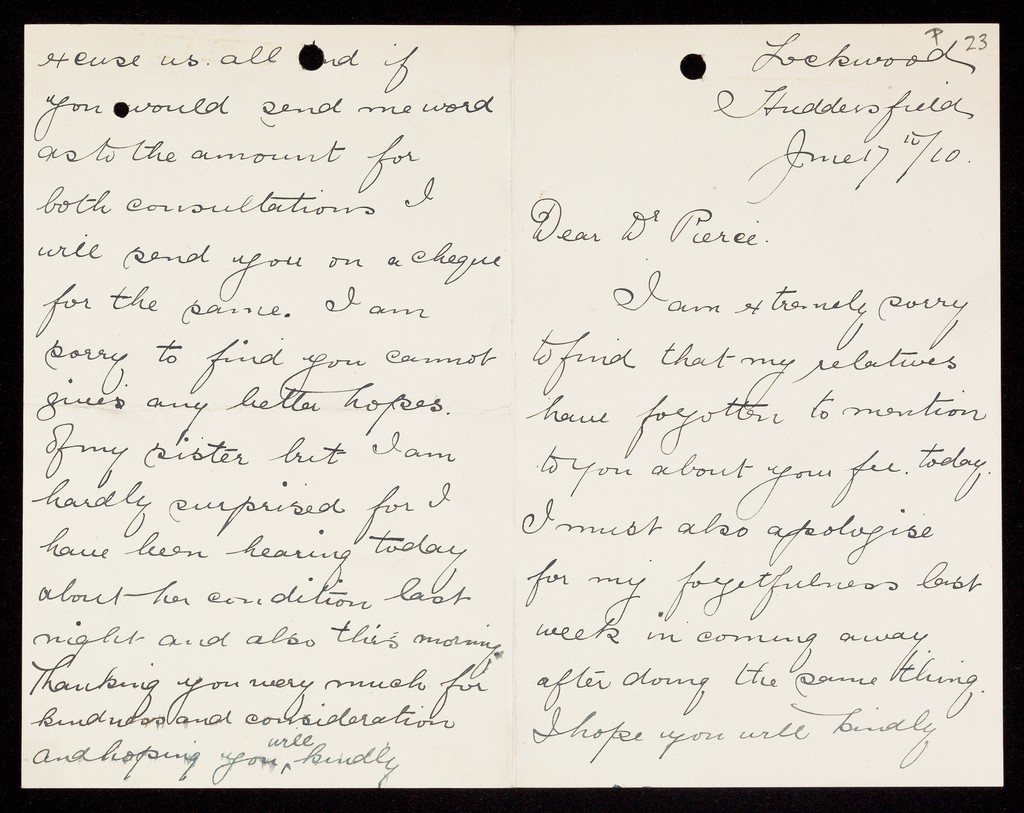 P 23
Lockwood
Huddersfield
June 17th/10.
Dear Dr Pierce.
I am extremely sorry
to find that my relatives
have forgotten to mention
to you about your fee. today.
I must also apologise
for my forgetfulness last
week in coming away
after doing the same thing.
I hope you will kindly
excuse us. all and if
you would send me word
as to the amount for
both consultations I
will send you on a cheque
for the same. I am
sorry to find you cannot
give any better hopes.
of my sister but I am
hardly surprised for I
have been hearing today
about her condition last
night and also this morning.
Thanking you very much for
kindness and consideration
and hoping you will kindly